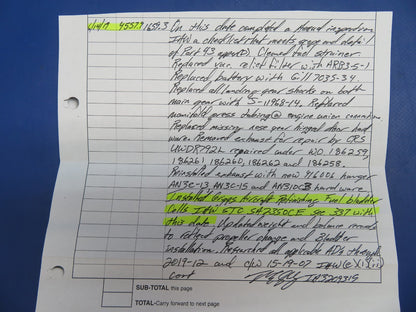 4557.9 1659.3 On this date completed a Annual inspection
IAW a checklist that meets scope and detail
of Part 43 app(D). Cleaned fuel strainer
Replaced vac. relief filter with AR B3-5-1
Replaced battery with Gill 7035-34.
Replaced all landing gear shocks on both
main gear with J-11968-14. Replaced
manifold press tubing @ engine union connection
Replaced missing nose gear hard
ware. Removed exhaust for repair by CRS
UWDR792L repaired under WO. 186259,
186261 186260, 186262 and 186258.
Reinstalled exhaust with new hanger
AN3C-13, AN3C-15 and AN310C3 hardware
Installed Griggs Aircraft Refinishing Fuel bladder
Cells IAW STC SA2350CE see 337 with
this date. Updated weight and balance records
to reflect propeller change and Bladder
installation. Researched all applicable ADs through
2019-12 and c/w 15-19-07 IAW
Cont IA3209315
SUB-TOTAL this page
TOTAL-Carry forward to next page